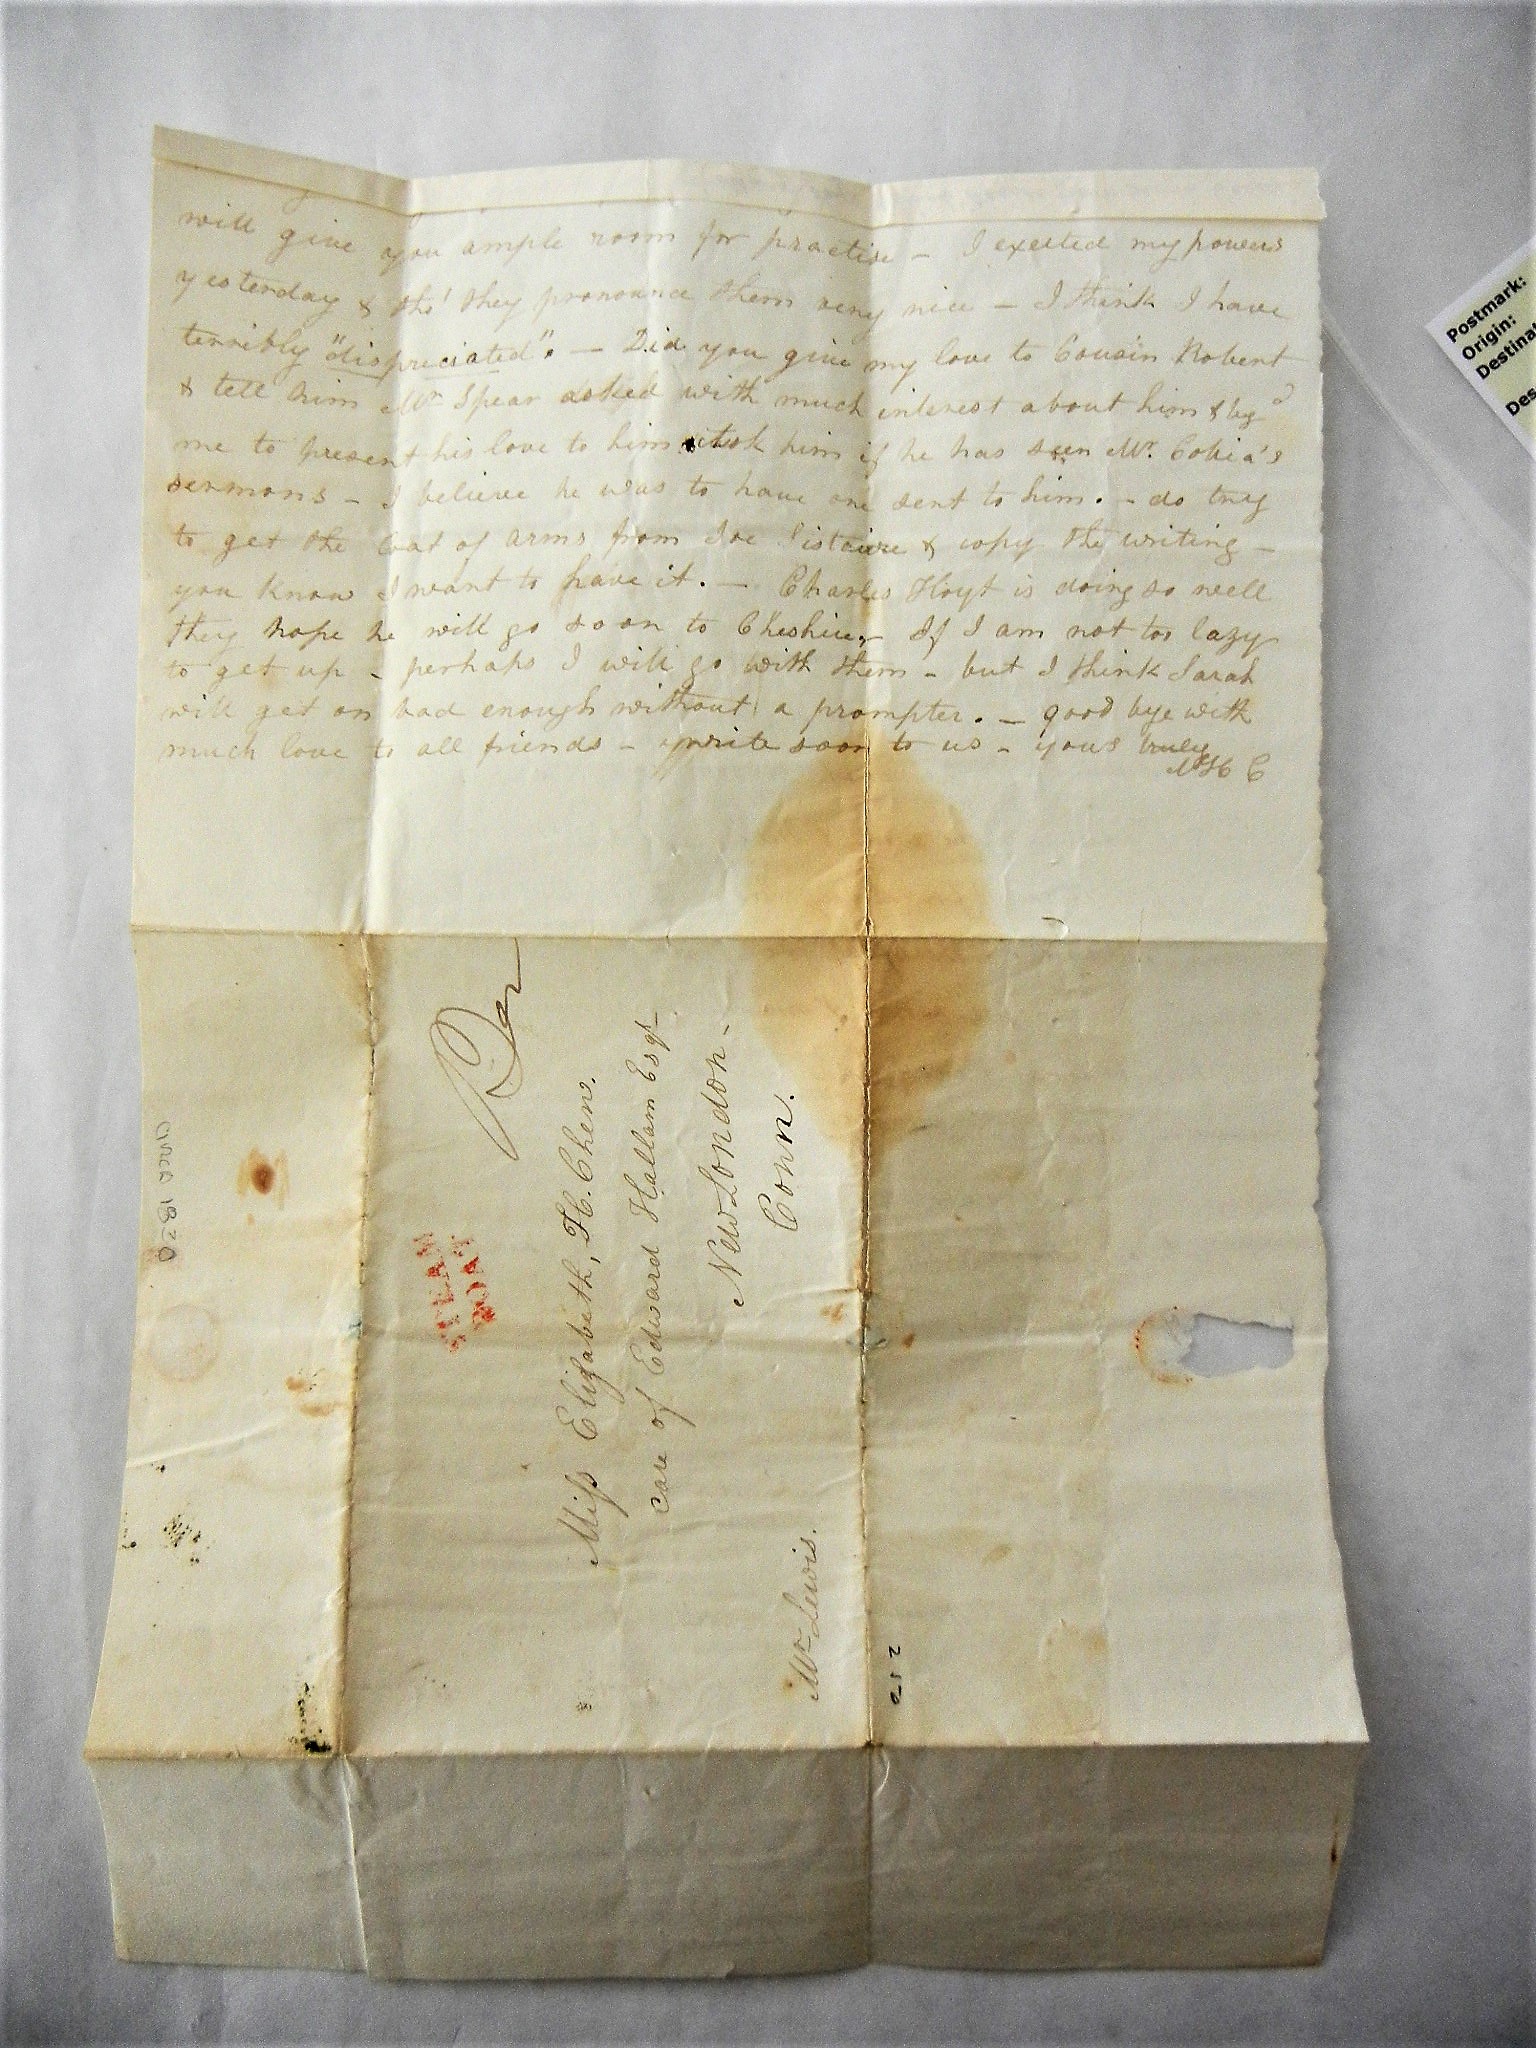 will give you ample room for practise – I exerted my powers
yesterday & tho' they pronounce them very nice – I think I have
terribly "dispreciated". – Did you give my love to Cousin Robert
& tell him Mr Spear asked with much interest about him & beg'd
me to present his love to him & ask him if he has seen Mr. Cobia's
sermons – I believe he was to have one sent to him. – do try
to get the Coat of arms from Joe & copy the writing –
you know I want to have it. – Charles Hoyt is doing so well
they hope he will go soon to Cheshire – If I am not too lazy
to get up – perhaps I will go with them – but I think Sarah
will get on bad enough without a prompter. – good bye with
much love to all friends – write soon to us – yours truly
H C
STEAM
BOAT
Miss Elizabeth, H. Chew.
care of Edward Hallam Esqr
New London –
Conn.
Mr Lewis.
circa 1830
250
Postmark:
Origin:
Destina
Des